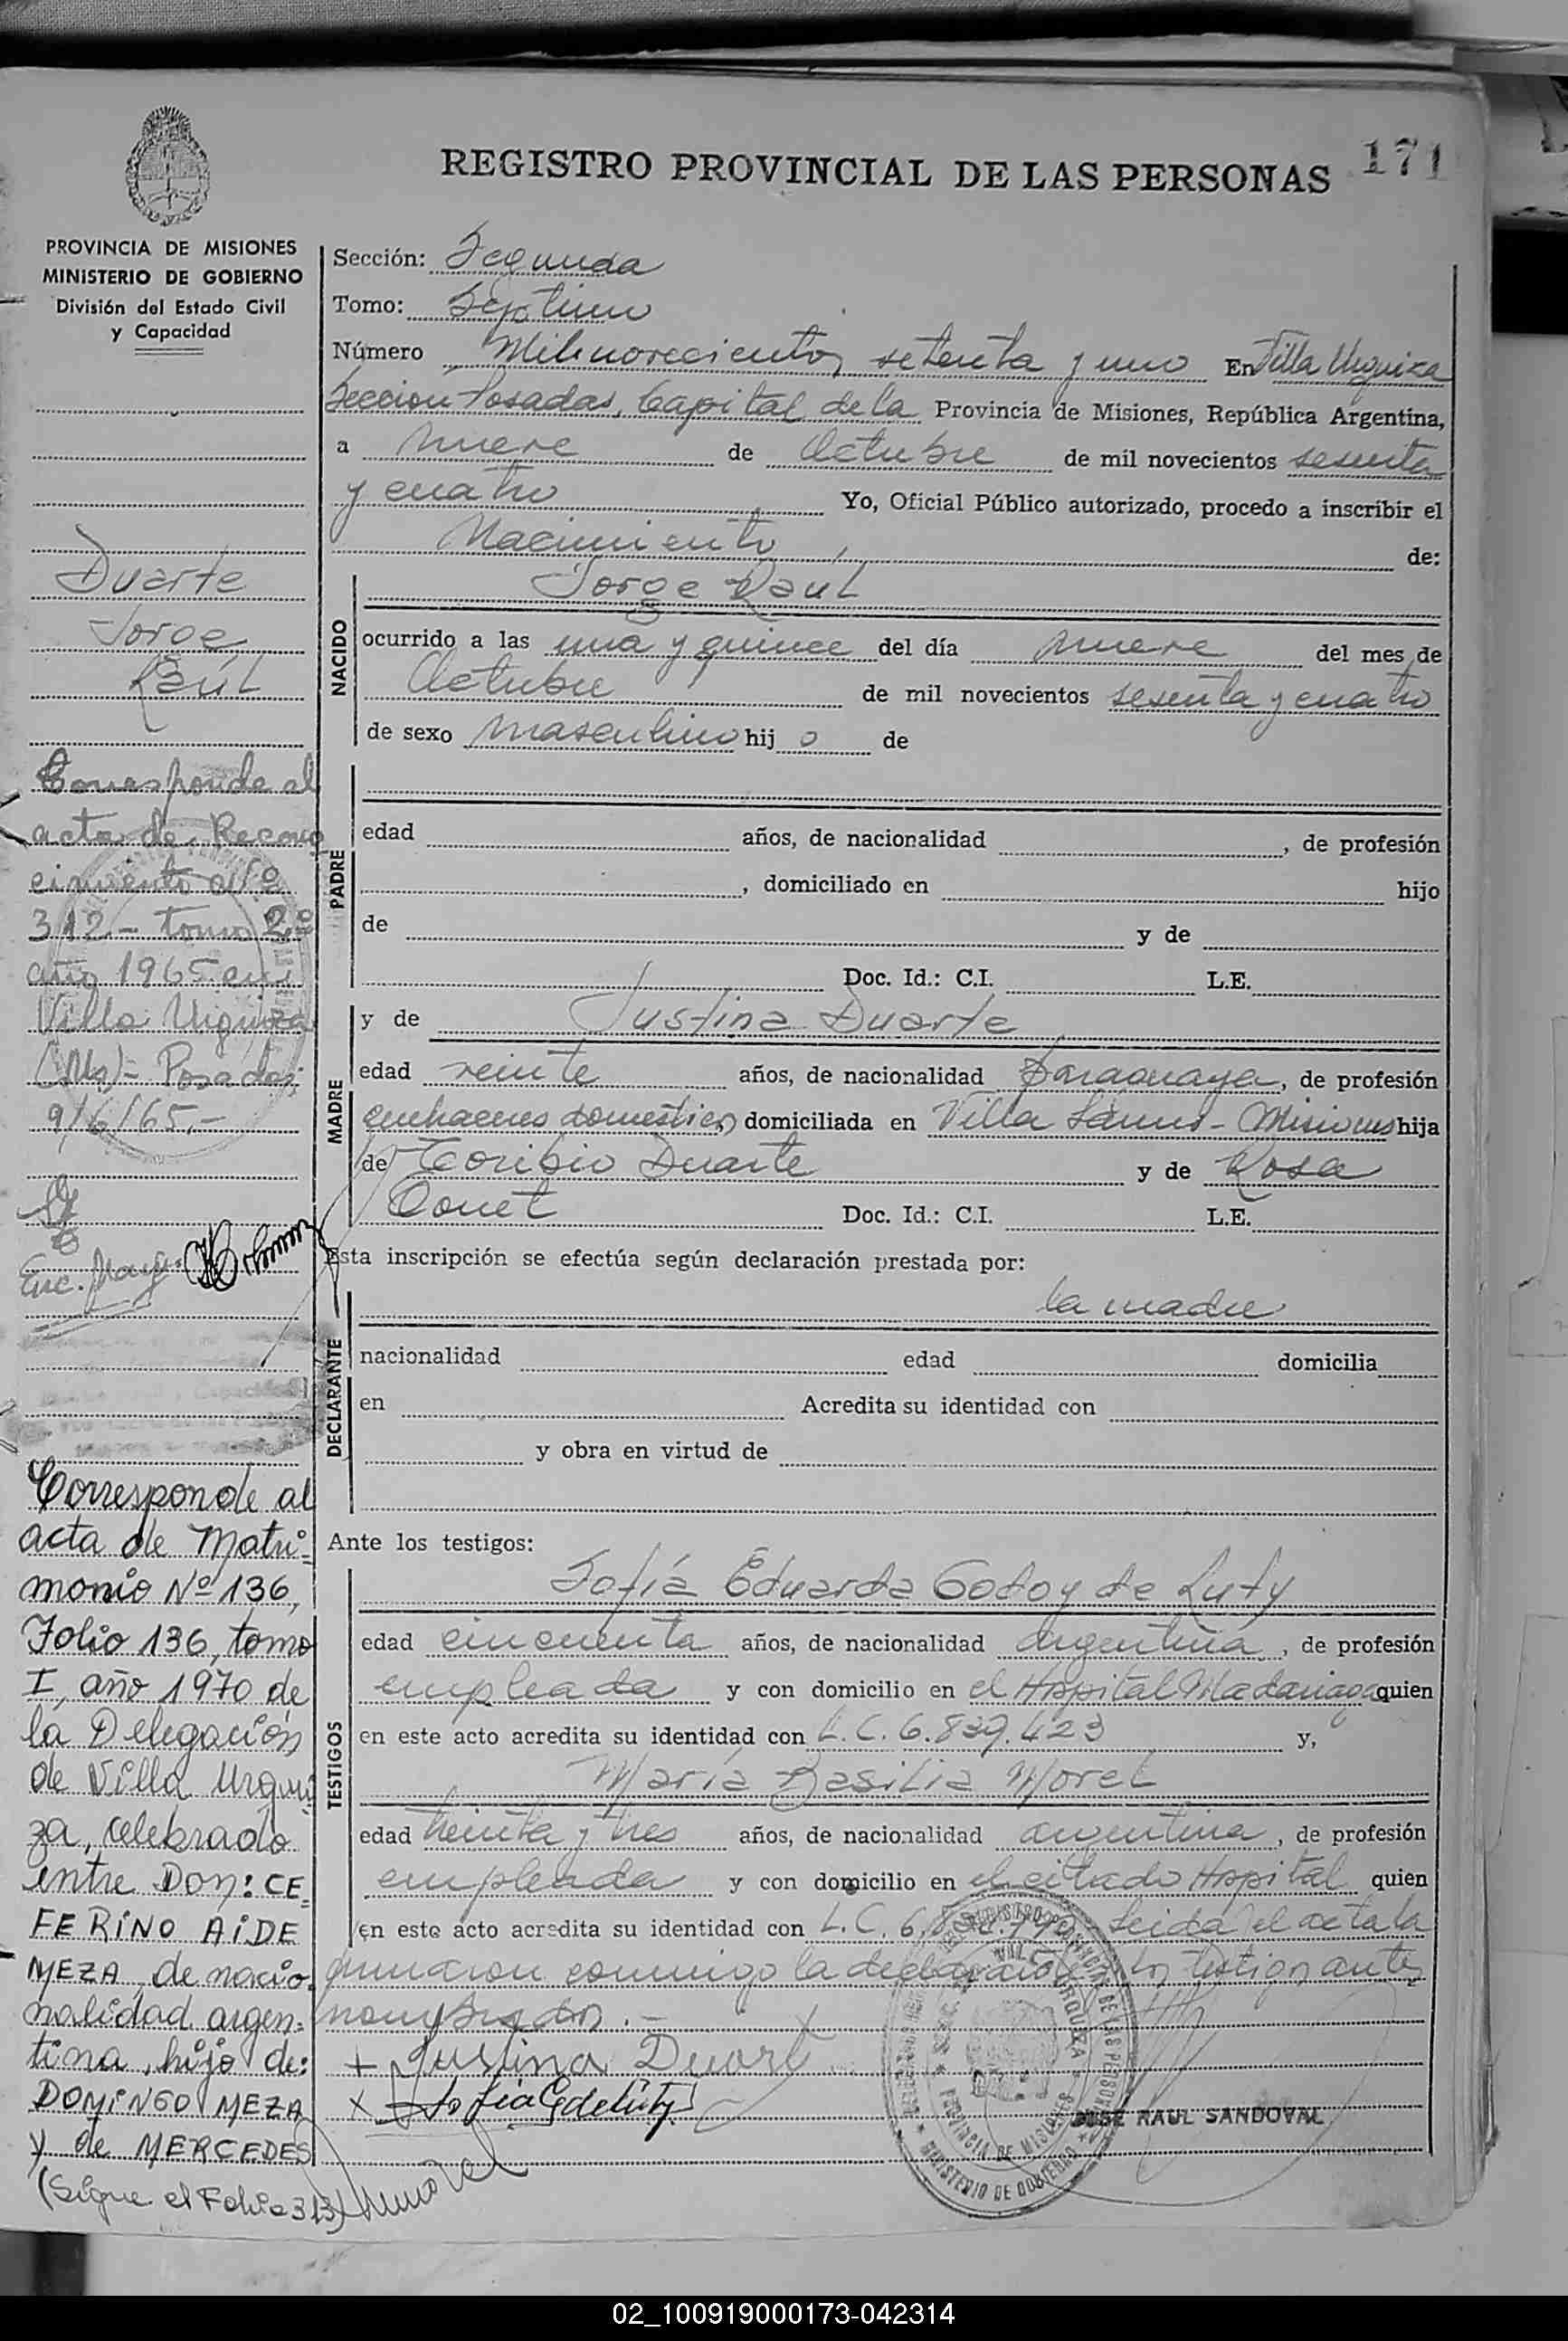 REGISTRO PROVINCIAL DE LAS PERSONAS 171
PROVINCIA DE MISIONES
MINISTERIO DE GOBIERNO
División del Estado Civil
y Capacidad
Duarte
Jorge
Raúl
Corresponde al
acta de Recono
cimiento Nº
312 - tomo 2º
año 1965 en
Villa Urquiza
(Ms) - Posadas
9/6/65.-
Corresponde al
acta de Matri-
monio Nº 136,
Folio 136, tomo
I, año 1970 de
la Delegación
de Villa Urqui
za, celebrado
entre Don: CE-
FERINO AIDE
MEZA, de nacio-
nalidad argen-
tina, hijo de:
DOMINGO MEZA
y de MERCEDES
(Sigue el Folio 313)
Sección: Segunda
Tomo: Septimo
Número Mil novecientos setenta y uno En Villa Urquiza
Seccion Posadas, Capital de la Provincia de Misiones, República Argentina,
a nueve de Octubre de mil novecientos sesenta
y cuatro Yo, Oficial Público autorizado, procedo a inscribir el
Nacimiento de:
NACIDO
Jorge Raúl
ocurrido a las una y quince del día nueve del mes de
Octubre de mil novecientos sesenta y cuatro
de sexo masculino hijo de
PADRE
edad años, de nacionalidad , de profesión
, domiciliado en hijo
de y de
Doc. Id.: C.I. L.E.
MADRE
y de Justina Duarte
edad veinte años, de nacionalidad Paraguaya, de profesión
quehaceres domesticos domiciliada en Villa Lanus - Misiones hija
de Toribio Duarte y de Rosa
Doc. Id.: C.I. L.E.
Esta inscripción se efectúa según declaración prestada por:
DECLARANTE
la madre
nacionalidad edad domicilia
en Acredita su identidad con
y obra en virtud de
Ante los testigos:
TESTIGOS
Sofía Eduarda Godoy de Luty
edad cincuenta años, de nacionalidad argentina, de profesión
empleada y con domicilio en el Hospital Madariaga quien
en este acto acredita su identidad con L.C. 6.839.423 y,
María Basilia Morel
edad treinta y tres años, de nacionalidad argentina, de profesión
empleada y con domicilio en el citado Hospital quien
en este acto acredita su identidad con L.C. 6. Leida el acta la
firmaron conmigo la declarante los testigos antes
nombrados.-
+ Justina Duart
x Sofia G de Luty
JOSE RAUL SANDOVAL
02_100919000173-042314